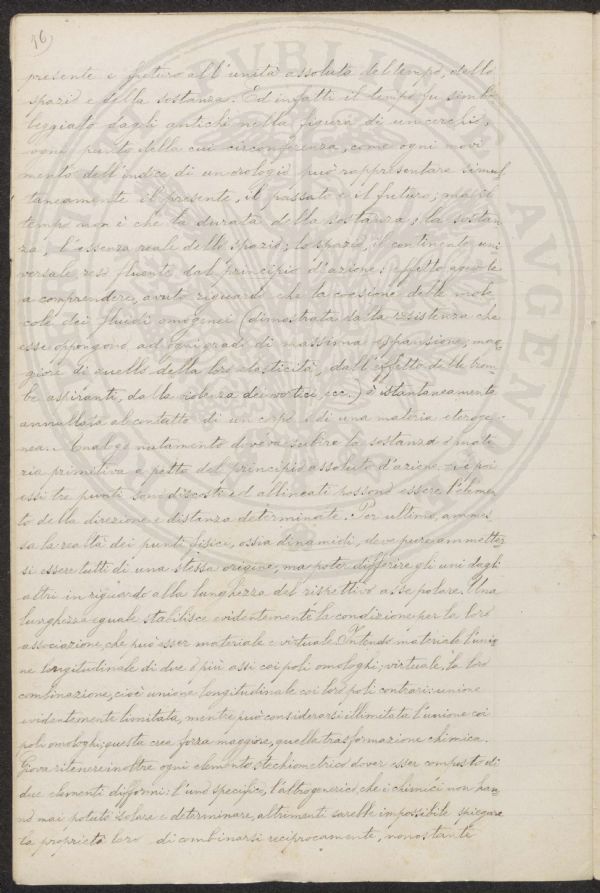 16)
presente e futuro all'unità assoluta del tempo, dello
spazio e della sostanza. Ed infatti il tempo fu simbo
leggiato dagli antichi nella figura di un cerchio,
ogni punto della cui circonferenza, come ogni movi
mento dell'indice di un orologio può rappresentare simul
taneamente il presente, il passato e il futuro; ma il
tempo non è che la durata della sostanza; la sostan
za, l'essenza reale dello spazio; lo spazio, il contincato uni
versale, reso fluente dal principio d'azione: effetto agevole
a comprendere, avuto riguardo che la coesione delle mole
cole dei fluidi omogenei (dimostrata dalla resistenza che
esse oppongono ad ogni grado di massima espansione, mag
giore di quello della loro elasticità, dall'effetto delle trom
be aspiranti, dalla violenza dei vortici, ecc.) è istantaneamente
annullata al contatto di un corpo o di una materia eteroge-
nea. Analogo mutamento doveva subire la sostanza o mate
ria primitiva a petto del principio assoluto d'azione. E poi
essi tre punti sono discosti ed allineati possono essere l'elemen
to della direzione e distanza determinate. Per ultimo, ammes
sa la realtà dei punti fisici, ossia dinamidi, deve pure ammetter
si essere tutti di una stessa origine, ma poter differire gli uni dagli
altri in riguardo alla lunghezza del rispettivo asse polare. Una
lunghezza eguale stabilisce evidentemente la condizione per la loro
associazione, che può esser materiale e virtuale. Intendo materiale l'unio
ne longitudinale di due o più assi coi poli omologhi; virtuale, la loro
combinazione, cioè unione longitudinale coi loro poli contrari: unione
evidentemente limitata, mentre può considerarsi illimitata l'unione coi
poli omologhi; questa crea forza maggiore, quella trasformazione chimica.
Giova ritenere inoltre ogni elemento stechiometrico dover esser composto di
due elementi difformi: l'uno specifico, l'altro generico, che i chimici non han
no mai potuto isolare e determinare, altrimenti sarebbe impossibile spiegare
la proprietà loro di combinarsi reciprocamente, nonostante